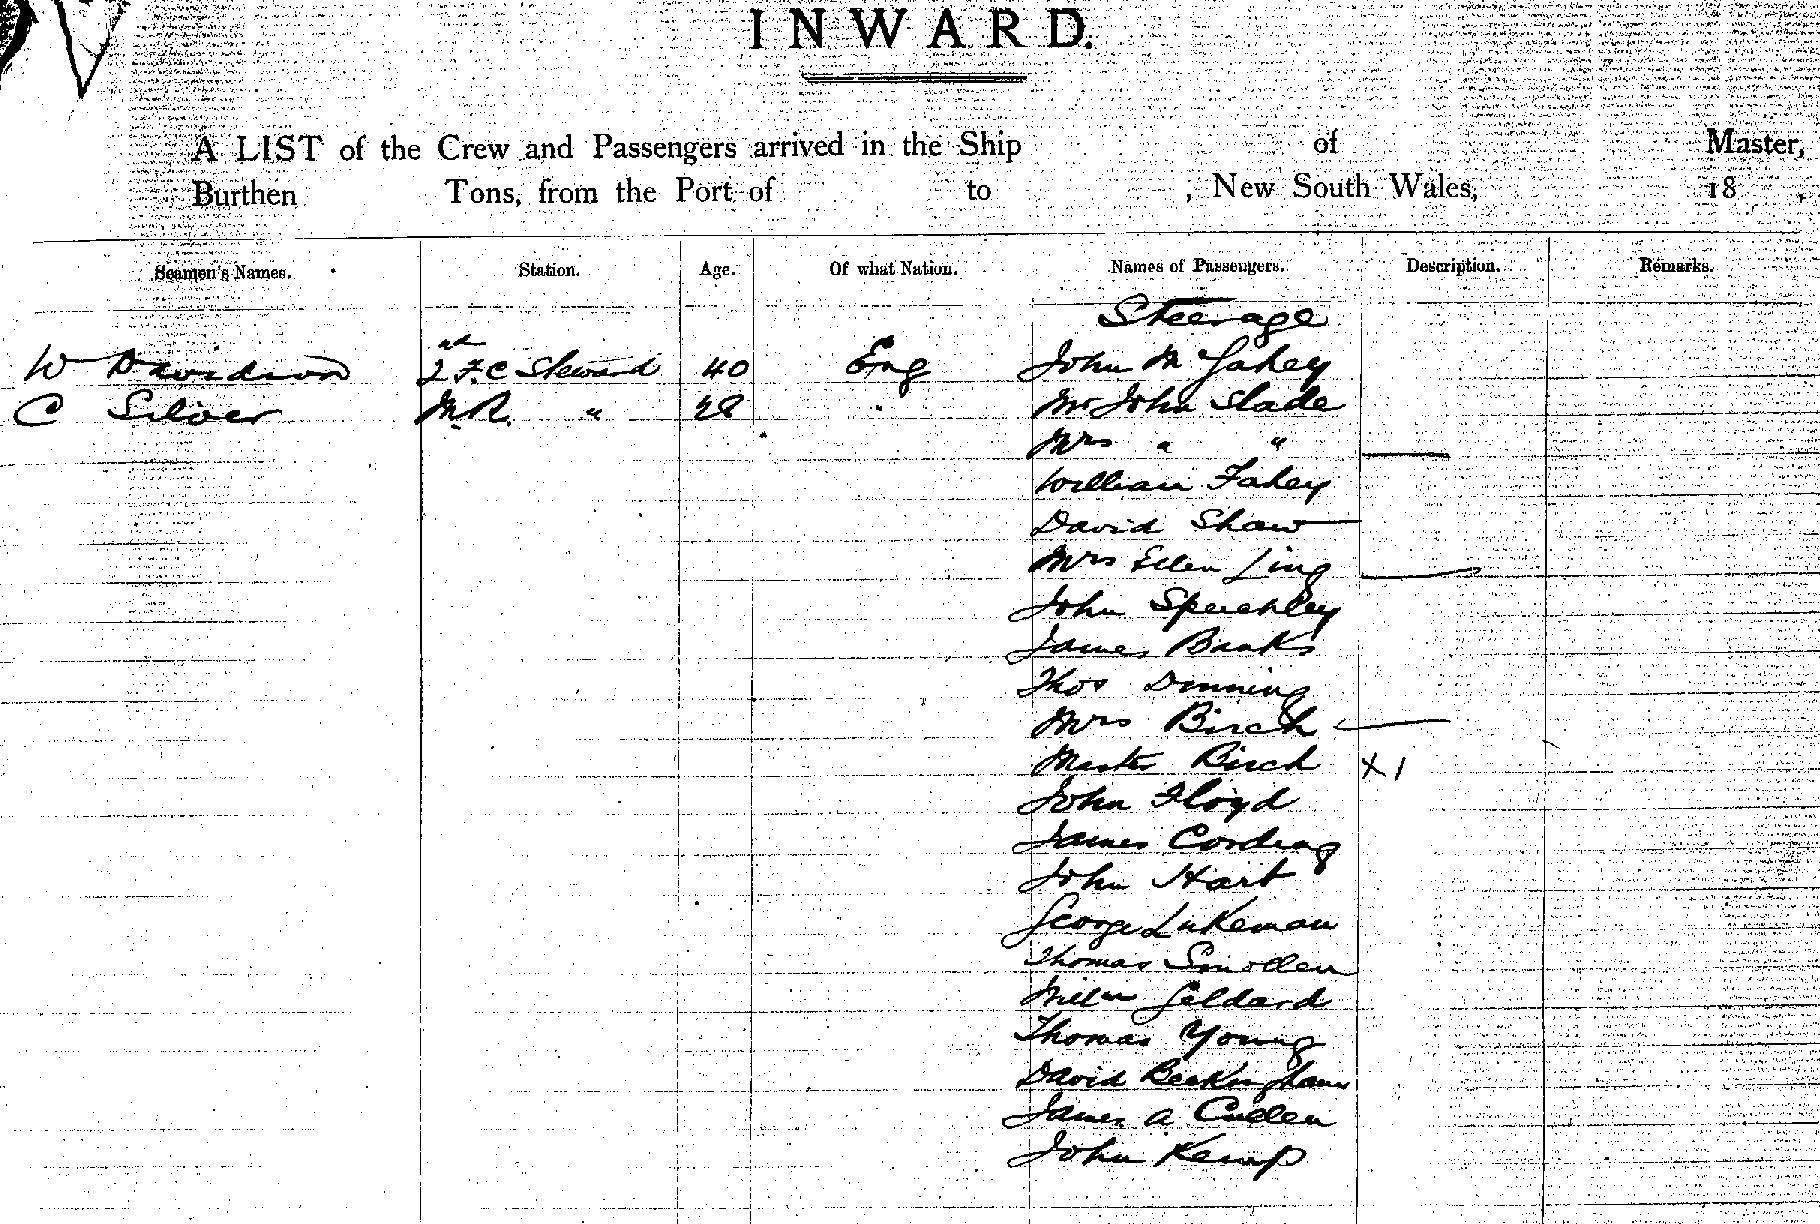 INWARD.
A LIST of the Crew and Passengers arrived in the Ship of Master,
Burthen Tons, from the Port of to , New South Wales, 18 ,
Seamen's Names. Station. Age. Of what Nation. Names of Passengers. Description. Remarks.
Steerage
W Davidson F.C Steward 40 Eng John
C Silver M.R. " 28 " Mr John Slade
Mrs " "
William Fahey
David Shaw
Mrs Ellen Ling
John Spechley
James Banks
Thos Dinning
Mrs Birch
Master Birch X 1
John Floyd
James Cording
John Hart
George Lukeman
Thomas Smollen
Willm Geldard
Thomas Young
David Beckingham
James A Cullen
John Kemp